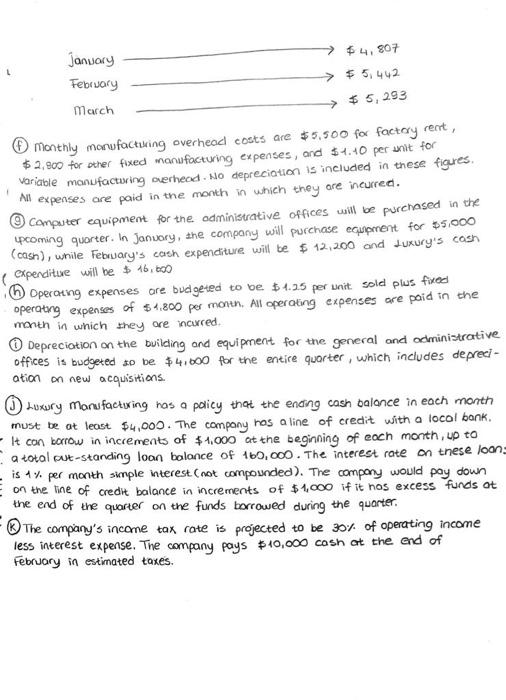 January → $ 4,807
February → $ 5,442
March → $ 5,293
(f) Monthly manufacturing overhead costs are $5,500 for factory rent,
$ 2,800 for other fixed manufacturing expenses, and $1.10 per unit for
variable manufacturing overhead. No depreciation is included in these figures.
All expenses are paid in the month in which they are incurred.
(g) Computer equipment for the administrative offices will be purchased in the
upcoming quarter. In January, the company will purchase equipment for $5,000
(cash), while February's cash expenditure will be $ 12,200 and Luxury's cash
expenditure will be $ 16,600
(h) Operating expenses are budgeted to be $1.25 per unit sold plus fixed
operating expenses of $1,800 per month. All operating expenses are paid in the
month in which they are incurred.
(i) Depreciation on the building and equipment for the general and administrative
offices is budgeted to be $4,600 for the entire quarter, which includes depreci-
ation on new acquisitions.
(J) Luxury Manufacturing has a policy that the ending cash balance in each month
must be at least $4,000. The company has a line of credit with a local bank.
It can borrow in increments of $1,000 at the beginning of each month, up to
a total out-standing loan balance of 160,000. The interest rate on these loans
is 1% per month simple interest (not compounded). The company would pay down
on the line of credit balance in increments of $1,000 if it has excess funds at
the end of the quarter on the funds borrowed during the quarter.
(K) The company's income tax rate is projected to be 30% of operating income
less interest expense. The company pays $10,000 cash at the end of
February in estimated taxes.